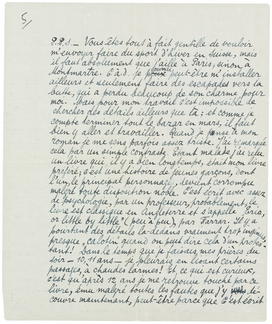 5,
P.P.S. – Vous êtes tout à fait gentille de vouloir
m'envoyer faire du sport d'hiver en Suisse, mais il
faut absolument que j'aille à Paris, sinon à
Montmartre. C. à d. je peut-être m'installer
ailleurs et seulement faire des escapades vers la
butte, qui a perdu beaucoup de son charme pour
moi. Mais pour mon travail c'est impossible de
chercher des détails ailleurs que là; et comme je
compte terminer tout le bazar en mars, il faut
bien y aller et travailler. Quand je pense à mon
roman je me sens parfois assez triste. J'ai remarqué
cela par un simple contraste. Avant-
un livre qui, il y a bien longtemps, était mon livre
préféré; c'est une histoire de jeunes garçons, dont
l'un, le principal personnage, devient corrompu
malgré toute disposition noble. C'est écrit avec assez
de psychologie, par un professeur, probablement, le
livre est classique en Angleterre et s'appelle: Eric
or little by little (peu à peu), par Farrar. Il y a
pourtant des détails là-dedans vraiment trop
presque, calotin quand on peut dire cela d'un protes-
tant! Dans le temps que je faisais mes prières du
soir – 10, 11 ans – je pleurais en lisant certains
passages, à chaudes larmes! Et ce qui est curieux,
c'est qu'après 12 ans je me retrouve touché par ce
livre, ému malgré toutes les fautes que j'y dé-
couvre maintenant, peut-être parce que c'est écrit